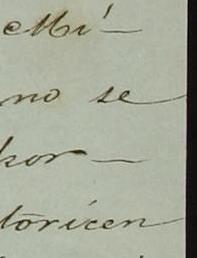 Mi-
no se
por-
toricen